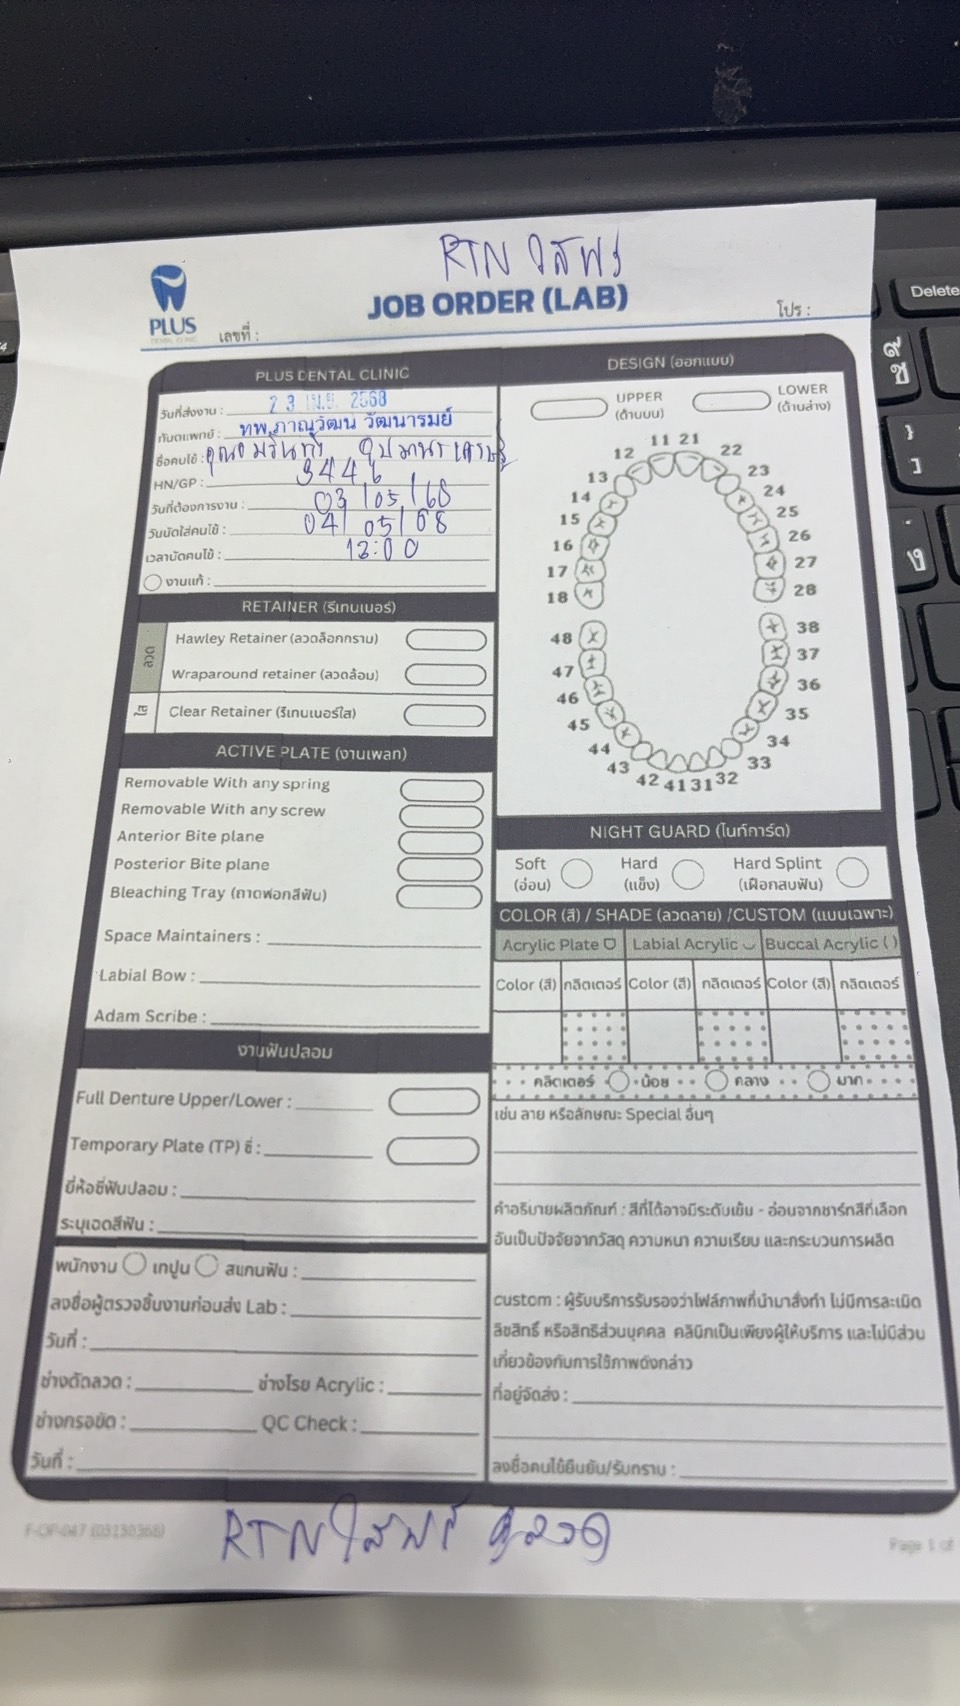 RTN ใสฟรี
PLUS
DENTAL CLINIC
JOB ORDER (LAB)
เลขที่ :
โปร :
PLUS DENTAL CLINIC
วันที่ส่งงาน : 23 เม.ย. 2568
ทันตแพทย์ : ทพ.ภาณุวัฒน วัฒนารมย์
ชื่อคนไข้ : คุณอมรินทร์
HN/GP : 3446
วันที่ต้องการงาน : 03/05/68
วันนัดใส่คนไข้ : 04/05/68
เวลานัดคนไข้ : 12:00
งานแก้ :
RETAINER (รีเทนเนอร์)
ลวด
Hawley Retainer (ลวดล็อกกราม)
Wraparound retainer (ลวดล้อม)
ใส
Clear Retainer (รีเทนเนอร์ใส)
ACTIVE PLATE (งานเพลท)
Removable With any spring
Removable With any screw
Anterior Bite plane
Posterior Bite plane
Bleaching Tray (ถาดฟอกสีฟัน)
Space Maintainers :
Labial Bow :
Adam Scribe :
งานฟันปลอม
Full Denture Upper/Lower :
Temporary Plate (TP) ซี่ :
ยี่ห้อซี่ฟันปลอม :
ระบุเฉดสีฟัน :
พนักงาน เทปูน สแกนฟัน :
ลงชื่อผู้ตรวจชิ้นงานก่อนส่ง Lab :
วันที่ :
ช่างดัดลวด : ช่างโรย Acrylic :
ช่างกรอขัด : QC Check :
วันที่ :
DESIGN (ออกแบบ)
UPPER
(ด้านบน)
LOWER
(ด้านล่าง)
11 21
12 22
13 23
14 24
15 25
16 26
17 27
18 28
48 38
47 37
46 36
45 35
44 34
43 33
42 41 31 32
NIGHT GUARD (ไนท์การ์ด)
Soft
(อ่อน)
Hard
(แข็ง)
Hard Splint
(เฝือกสบฟัน)
COLOR (สี) / SHADE (ลวดลาย) /CUSTOM (แบบเฉพาะ)
Acrylic Plate Labial Acrylic Buccal Acrylic ( )
Color (สี) กลิตเตอร์ Color (สี) กลิตเตอร์ Color (สี) กลิตเตอร์
กลิตเตอร์ น้อย กลาง มาก
เช่น ลาย หรือลักษณะ Special อื่นๆ
คำอธิบายผลิตภัณฑ์ : สีที่ได้อาจมีระดับเข้ม - อ่อนจากชาร์ทสีที่เลือก
อันเป็นปัจจัยจากวัสดุ ความหนา ความเรียบ และกระบวนการผลิต
custom : ผู้รับบริการรับรองว่าไฟล์ภาพที่นำมาสั่งทำ ไม่มีการละเมิด
ลิขสิทธิ์ หรือสิทธิส่วนบุคคล คลินิกเป็นเพียงผู้ให้บริการ และไม่มีส่วน
เกี่ยวข้องกับการใช้ภาพดังกล่าว
ที่อยู่จัดส่ง :
ลงชื่อคนไข้ยืนยัน/รับทราบ :
RTN ใสฟรี
F-OP-047 (03130368)
Page 1 of
Delete